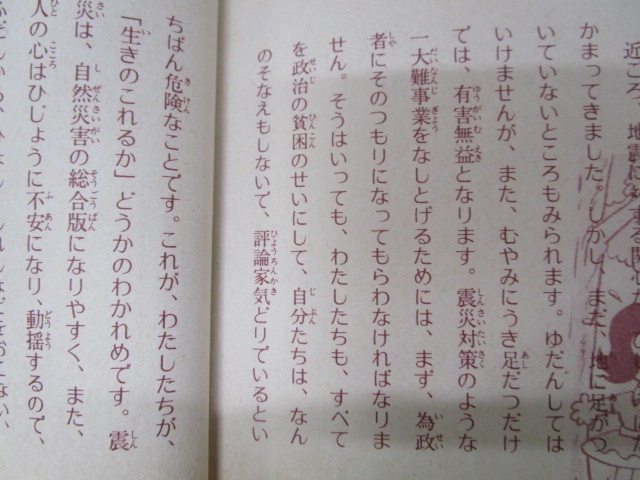 近ごろ、地震に対する関心
かまってきました。しかし、まだ、地に足がつ
いていないところもみられます。ゆだんしては
いけませんが、また、むやみにうき足だつだけ
では、有害無益となります。震災対策のような
一大難事業をなしとげるためには、まず、為政
者にそのつもりになってもらわなければなりま
せん。そうはいっても、わたしたちも、すべて
を政治の貧困のせいにして、自分たちは、なん
のそなえもしないで、評論家気どりでいるとい
ちばん危険なことです。これが、わたしたちが、
「生きのこれるか」どうかのわかれめです。震
災は、自然災害の総合版になりやすく、また、
人の心はひじょうに不安になり、動揺するので、